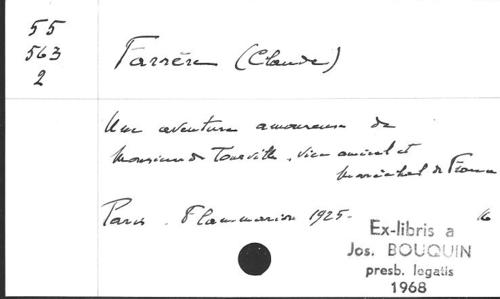 55
563
2
Farrère (Claude)
Une aventure amoureuse de
Monsieur de Tourville, vice amiral et
maréchal de France
Paris. Flammarion 1925.
16
Ex-libris a
Jos. BOUQUIN
presb. legatis
1968